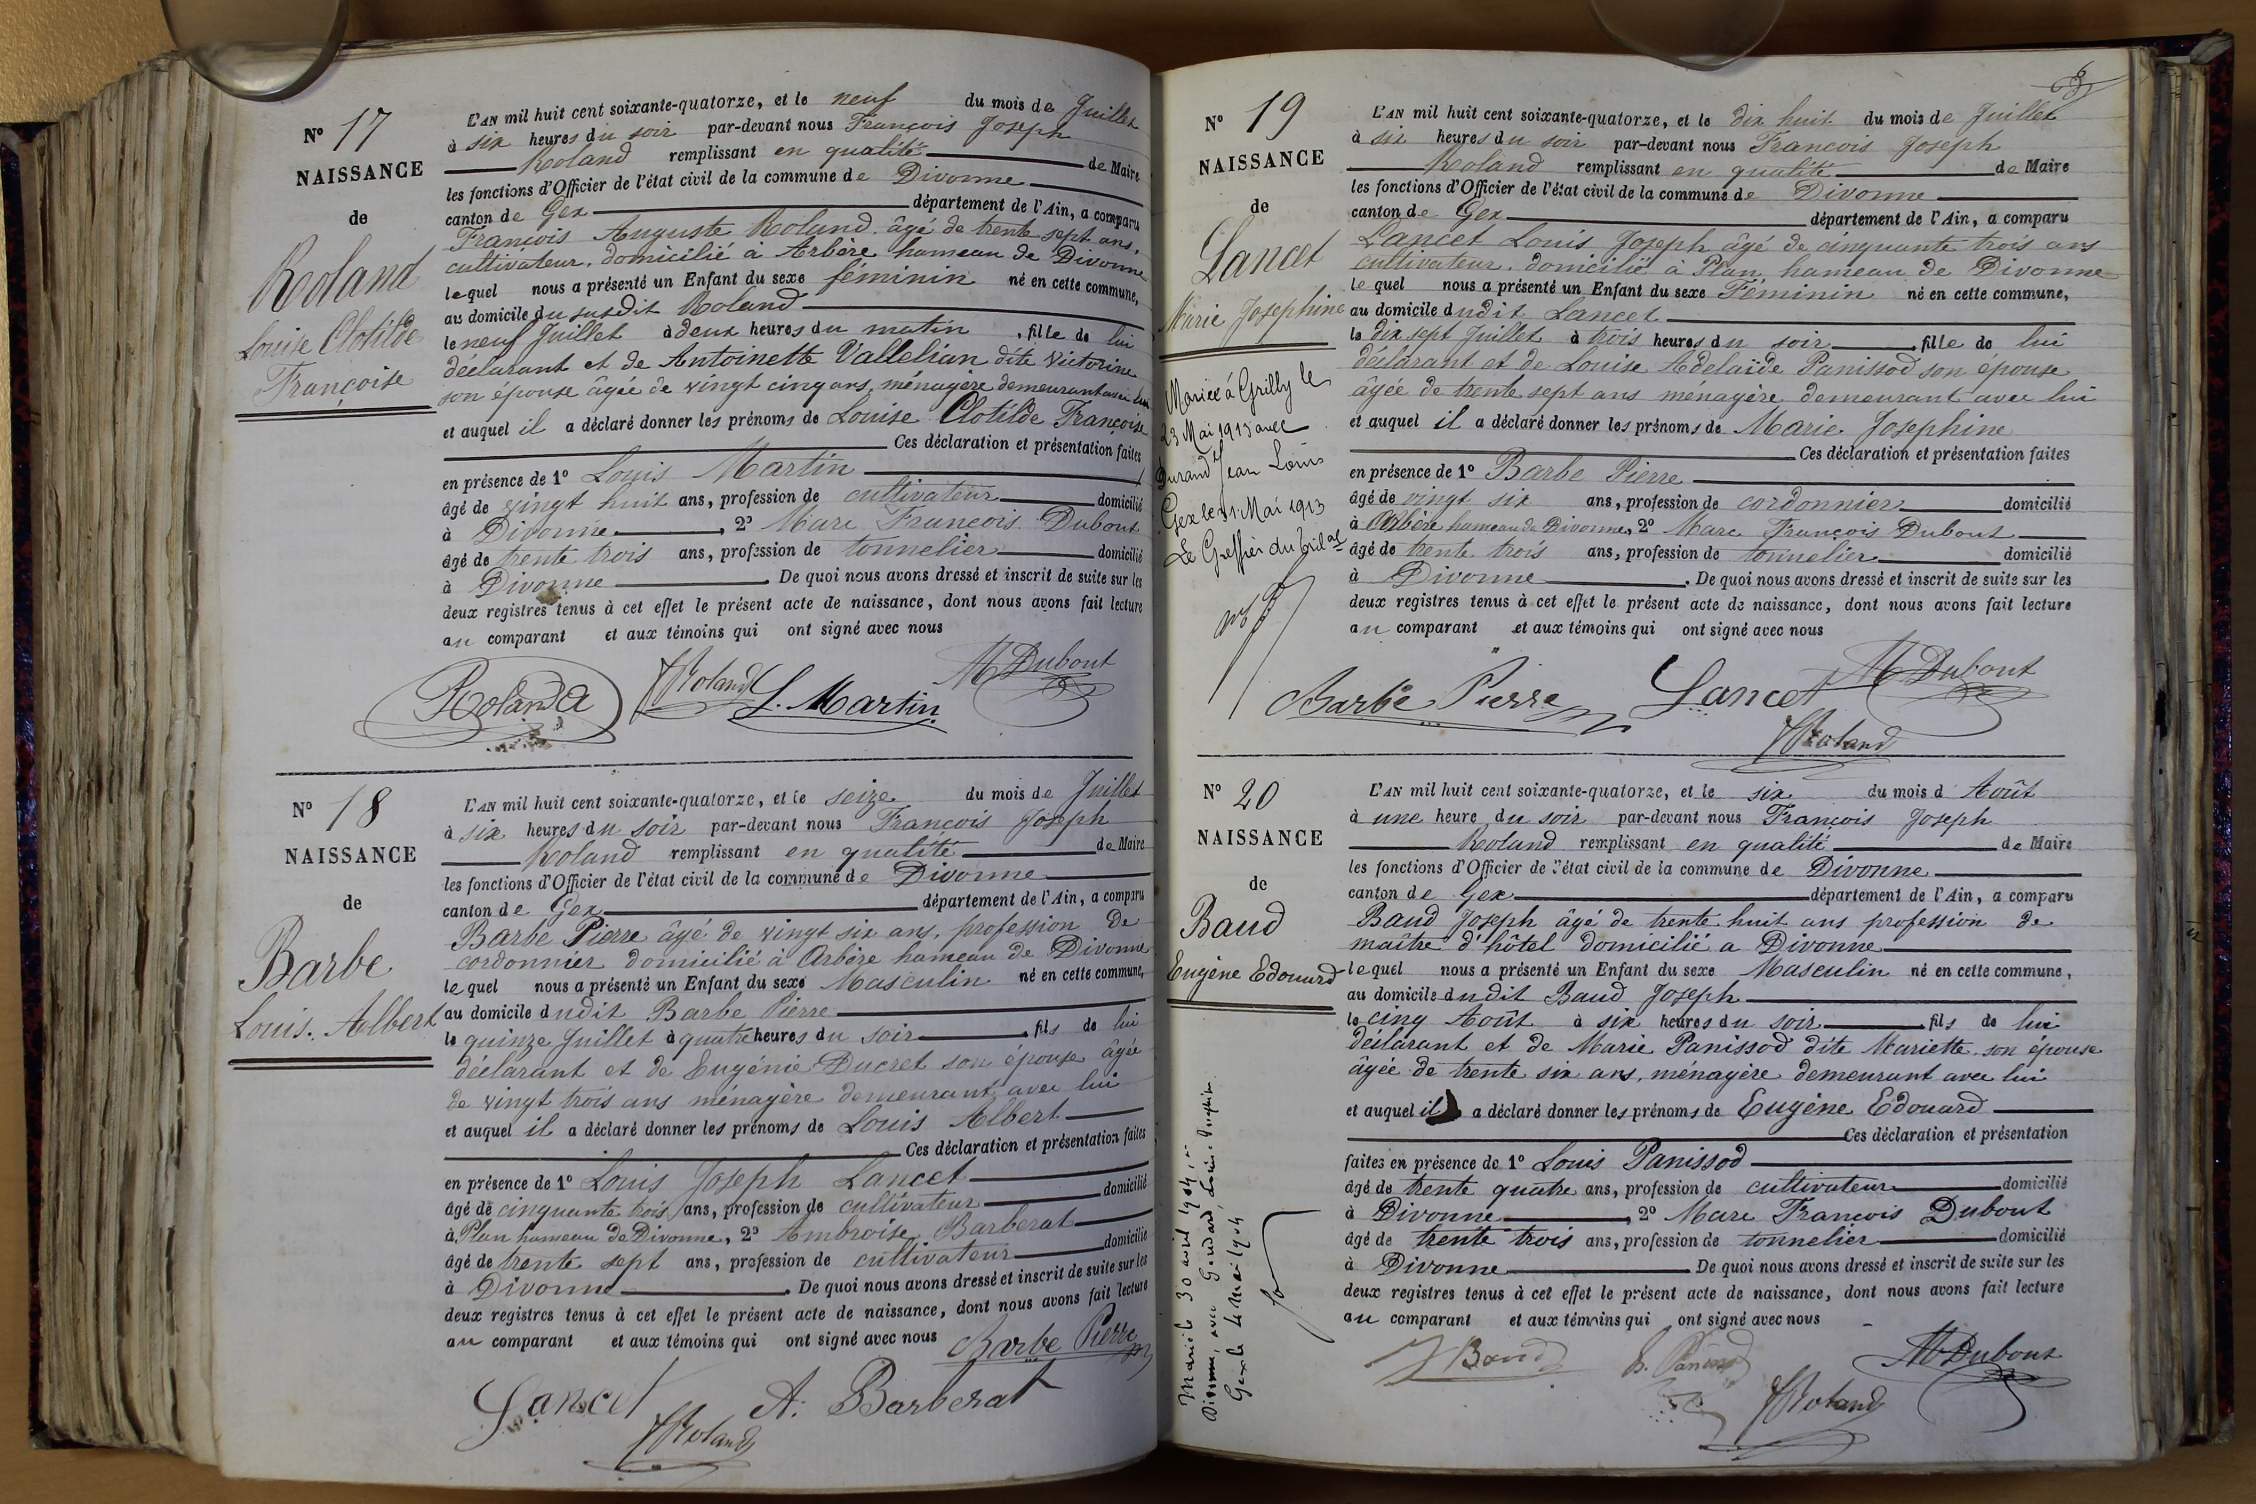 Nº 17
NAISSANCE
de
Roland
Louise Clotilde
Françoise
L'AN mil huit cent soixante-quatorze, et le neuf du mois de Juillet
à six heures du soir par-devant nous François Joseph
Roland remplissant en qualité de Maire
les fonctions d'Officier de l'état civil de la commune de Divonne
canton de Gex département de l'Ain, a comparu
François Auguste Roland, âgé de trente sept ans,
cultivateur, domicilié à Arbère hameau de Divonne
lequel nous a présenté un Enfant du sexe féminin né en cette commune,
au domicile du susdit Roland
le neuf Juillet à deux heures du matin, fille de lui
déclarant et de Antoinette Vallelian dite Victorine
son épouse âgée de vingt cinq ans, ménagère demeurant avec lui
et auquel il a déclaré donner les prénoms de Louise Clotilde Françoise
Ces déclaration et présentation faites
en présence de 1º Louis Martin
âgé de vingt huit ans, profession de cultivateur domicilié
à Divonne, 2º Marc François Dubout
âgé de trente trois ans, profession de tonnelier domicilié
à Divonne. De quoi nous avons dressé et inscrit de suite sur les
deux registres tenus à cet effet le présent acte de naissance, dont nous avons fait lecture
au comparant et aux témoins qui ont signé avec nous
Roland A
Roland L. Martin
M Dubout
Nº 18
NAISSANCE
de
Barbe
Louis Albert
L'AN mil huit cent soixante-quatorze, et le seize du mois de Juillet
à six heures du soir par-devant nous François Joseph
Roland remplissant en qualité de Maire
les fonctions d'Officier de l'état civil de la commune de Divonne
canton de Gex département de l'Ain, a comparu
Barbe Pierre âgé de vingt six ans, profession de
cordonnier domicilié à Arbère hameau de Divonne
lequel nous a présenté un Enfant du sexe Masculin né en cette commune,
au domicile dudit Barbe Pierre
le quinze Juillet à quatre heures du soir, fils de lui
déclarant et de Eugénie Ducret son épouse âgée
de vingt trois ans ménagère demeurant avec lui
et auquel il a déclaré donner les prénoms de Louis Albert
Ces déclaration et présentation faites
en présence de 1º Louis Joseph Lancet
âgé de cinquante trois ans, profession de cultivateur domicilié
à Plan hameau de Divonne, 2º Ambroise Barberat
âgé de trente sept ans, profession de cultivateur domicilié
à Divonne. De quoi nous avons dressé et inscrit de suite sur les
deux registres tenus à cet effet le présent acte de naissance, dont nous avons fait lecture
au comparant et aux témoins qui ont signé avec nous Barbe Pierre
Lancet A. Barberat
Roland
Nº 19
NAISSANCE
de
Lancet
Marie Josephine
Mariée à Grilly le
23 Mai 1913 avec
Durand Jean Louis
Gex le 31 Mai 1913
Le Greffier du trib al
L'AN mil huit cent soixante-quatorze, et le dix huit du mois de Juillet
à six heures du soir par-devant nous François Joseph
Roland remplissant en qualité de Maire
les fonctions d'Officier de l'état civil de la commune de Divonne
canton de Gex département de l'Ain, a comparu
Lancet Louis Joseph âgé de cinquante trois ans
cultivateur, domicilié à Plan, hameau de Divonne
lequel nous a présenté un Enfant du sexe Féminin né en cette commune,
au domicile dudit Lancet
le dix sept Juillet à trois heures du soir, fille de lui
déclarant et de Louise Adelaïde Panissod son épouse
âgée de trente sept ans ménagère demeurant avec lui
et auquel il a déclaré donner les prénoms de Marie Josephine
Ces déclaration et présentation faites
en présence de 1º Barbe Pierre
âgé de vingt six ans, profession de cordonnier domicilié
à Arbère hameau de Divonne, 2º Marc François Dubout
âgé de trente trois ans, profession de tonnelier domicilié
à Divonne. De quoi nous avons dressé et inscrit de suite sur les
deux registres tenus à cet effet le présent acte de naissance, dont nous avons fait lecture
au comparant et aux témoins qui ont signé avec nous
Barbe Pierre Lancet M Dubout
Roland
Nº 20
NAISSANCE
de
Baud
Eugène Edouard
Marié le 30 avril 1904 à
Divonne, avec
Gex le 4 Mai 1904
L'AN mil huit cent soixante-quatorze, et le six du mois d Août
à une heure du soir par-devant nous François Joseph
Roland remplissant en qualité de Maire
les fonctions d'Officier de l'état civil de la commune de Divonne
canton de Gex département de l'Ain, a comparu
Baud Joseph âgé de trente huit ans profession de
maître d'hôtel domicilié a Divonne
lequel nous a présenté un Enfant du sexe Masculin né en cette commune,
au domicile dudit Baud Joseph
le cinq Août à six heures du soir, fils de lui
déclarant et de Marie Panissod dite Mariette son épouse
âgée de trente six ans, ménagère demeurant avec lui
et auquel il a déclaré donner les prénoms de Eugène Edouard
Ces déclaration et présentation
faites en présence de 1º Louis Panissod
âgé de trente quatre ans, profession de cultivateur domicilié
à Divonne, 2º Marc François Dubout
âgé de trente trois ans, profession de tonnelier domicilié
à Divonne. De quoi nous avons dressé et inscrit de suite sur les
deux registres tenus à cet effet le présent acte de naissance, dont nous avons fait lecture
au comparant et aux témoins qui ont signé avec nous
J Baud L. Panissod M Dubout
Roland